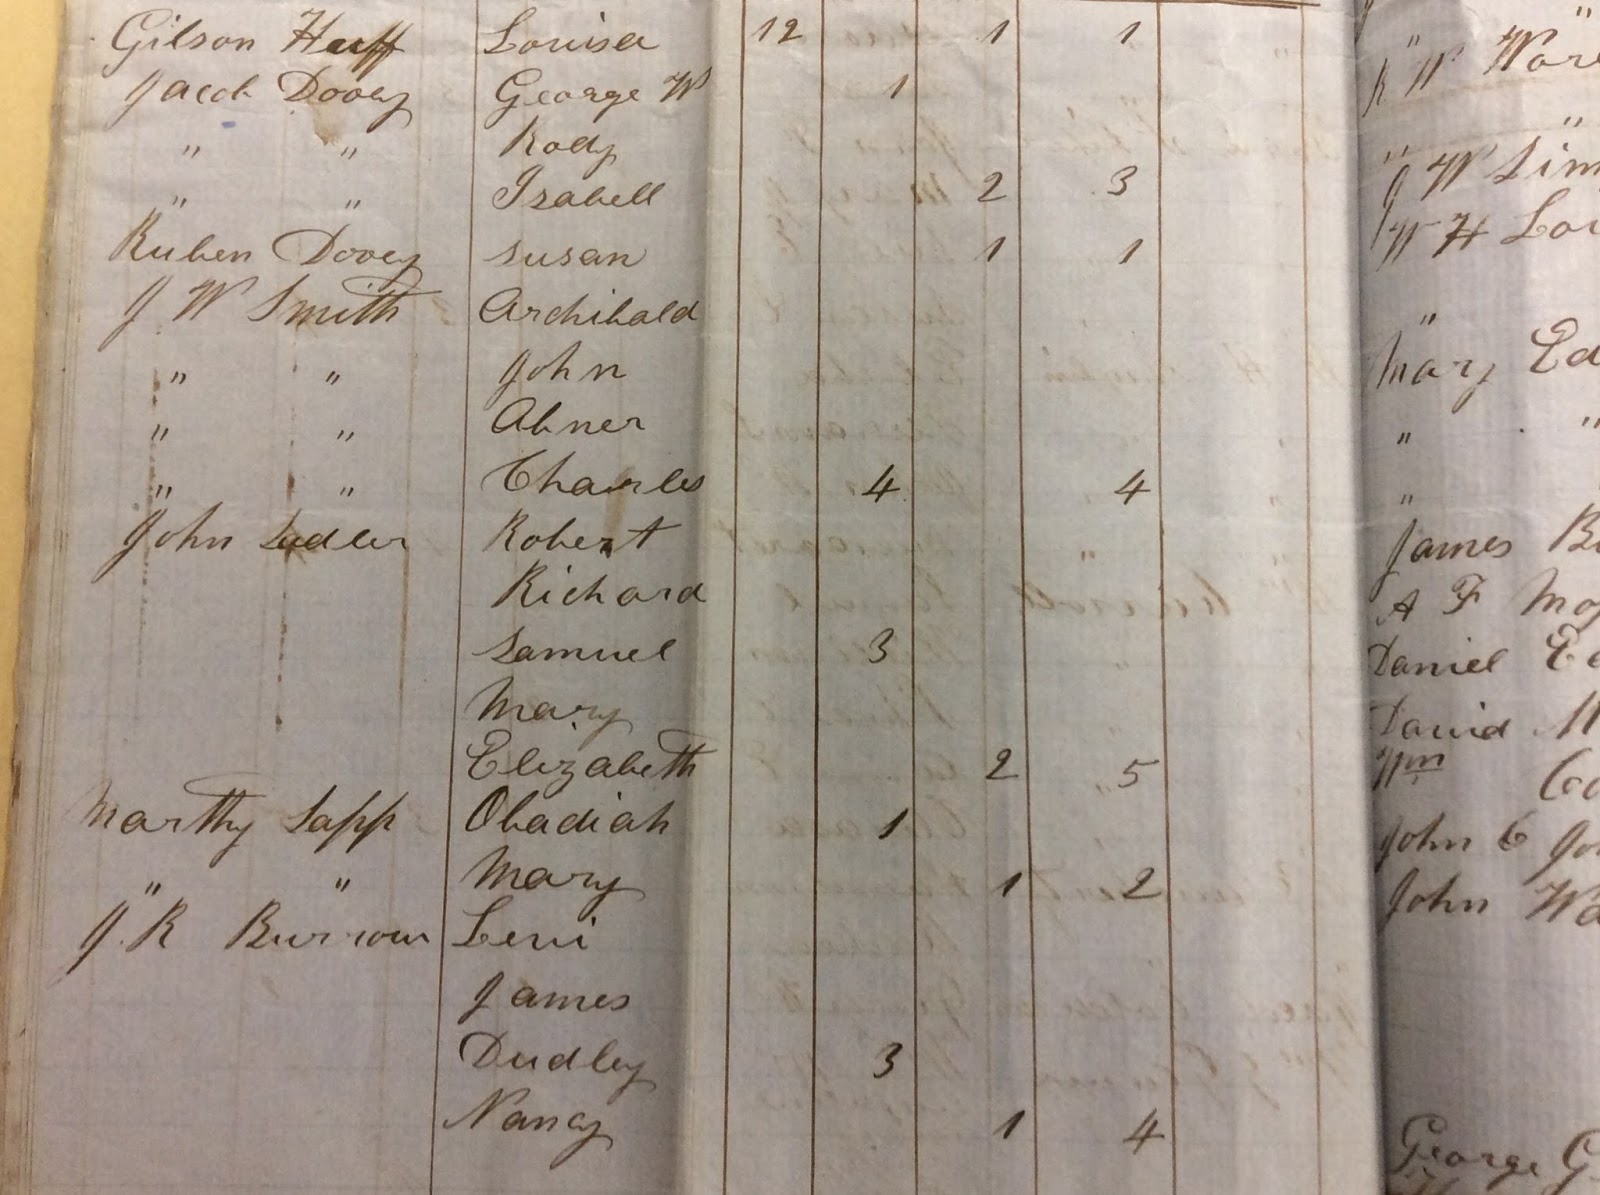 Gilson Huff Louisa 12 1 1
Jacob Dooey George W 1
" " Rody
" " Isabell 2 3
Ruben Dooey Susan 1 1
J W Smith Archibald
" " John
" " Abner
" " Charles 4 4
John Sadler Robert
Richard
Samuel 3
Mary
Elizabeth 2 5
Marthy Sapp Obadiah 1
" " Mary 1 2
J. R Burrow Levi
James
Dudley 3
Nancy 1 4
"
" W
"
" W
W H
"
Mary
" "
"
James
A F
Daniel
David
Wm
John C
John
George G